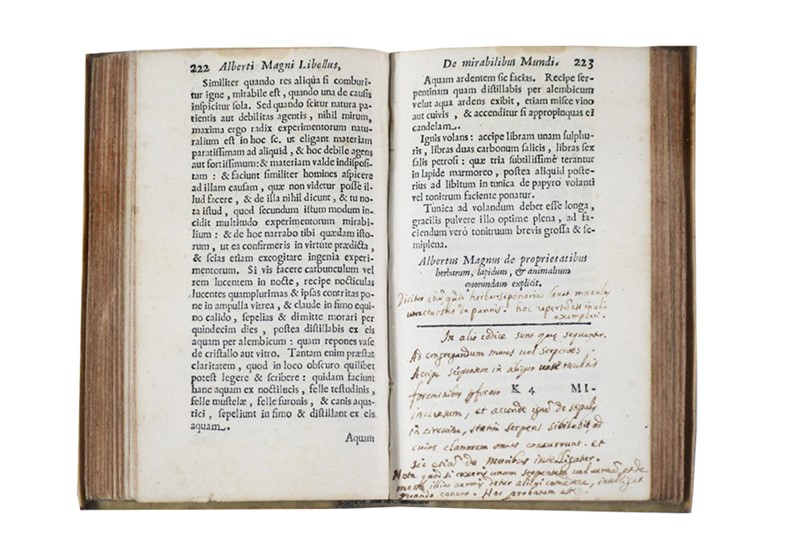 222 Alberti Magni Libellus,
Similiter quando res aliqua si comburi-
tur igne, mirabile est, quando una de causis
inspicitur sola. Sed quando scitur natura pa-
tientis aut debilitas agentis, nihil mirum,
maxima ergo radix experimentorum natu-
ralium est in hoc sc. ut eligant materiam
paratissimam ad aliquid, & hoc debile agens
aut fortissimum: & materiam valde indisposi-
tam: & faciunt similiter homines aspicere
ad illam causam, quæ non videtur posse il-
lud facere, & de illa nihil dicunt, & tu no-
ta istud, quod secundum istum modum in-
cidit multitudo experimentorum mirabi-
lium: & de hoc narrabo tibi quædam isto-
rum, ut ea confirmeris in virtute prædicta,
& scias etiam excogitare ingenia experi-
mentorum. Si vis facere carbunculum vel
rem lucentem in nocte, recipe nocticulas
lucentes quamplurimas & ipsas contritas po-
ne in ampulla vitrea, & claude in fimo equi-
no calido, sepelias & dimitte morari per
quindecim dies, postea distillabis ex eis
aquam per alembicum: quam repones vase
de cristallo aut vitro. Tantam enim præstat
claritatem, quod in loco obscuro quilibet
potest legere & scribere: quidam faciunt
hanc aquam ex noctilucis, felle testudinis,
felle mustelæ, felle furonis, & canis aqua-
tici, sepeliunt in fimo & distillant ex eis
aquam.
Aquam
De mirabilibus Mundi. 223
Aquam ardentem sic facias. Recipe ser-
pentinam quam distillabis per alembicum
velut aqua ardens exibit, etiam misce vino
aut cuivis, & accenditur si appropinquas ei
candelam.
Ignis volans: accipe libram unam sulphu-
ris, libras duas carbonum salicis, libras sex
salis petrosi: quæ tria subtilissimè terantur
in lapide marmoreo, postea aliquid poste-
rius ad libitum in tunica de papyro volanti
vel tonitrum faciente ponatur.
Tunica ad volandum debet esse longa,
gracilis pulvere illo optime plena, ad fa-
ciendum verò tonitruum brevis grossa & se-
miplena.
Albertus Magnus de proprietatibus
herbarum, lapidum, & animalium
quorundam explicit.
herba saponaria
de pannis. hoc repertum est in alio
exemplari.
In alio codice sunt quæ sequuntur.
Ad congregandum mures vel serpentes
Accipe serpentem in aliquo vase multis
foraminibus
K 4 MI-
inclusum, et accende ignem de
in circuitu, statim serpens sibilabit ad
cuius clamorem omnes concurrunt. et
sic etiam de muribus intelligatur.
Nota quod si coxeris unam serpentem vel vermem, et de
illius vermis detur alicui comedere, intelliget
quando canunt. Hoc probatum est.